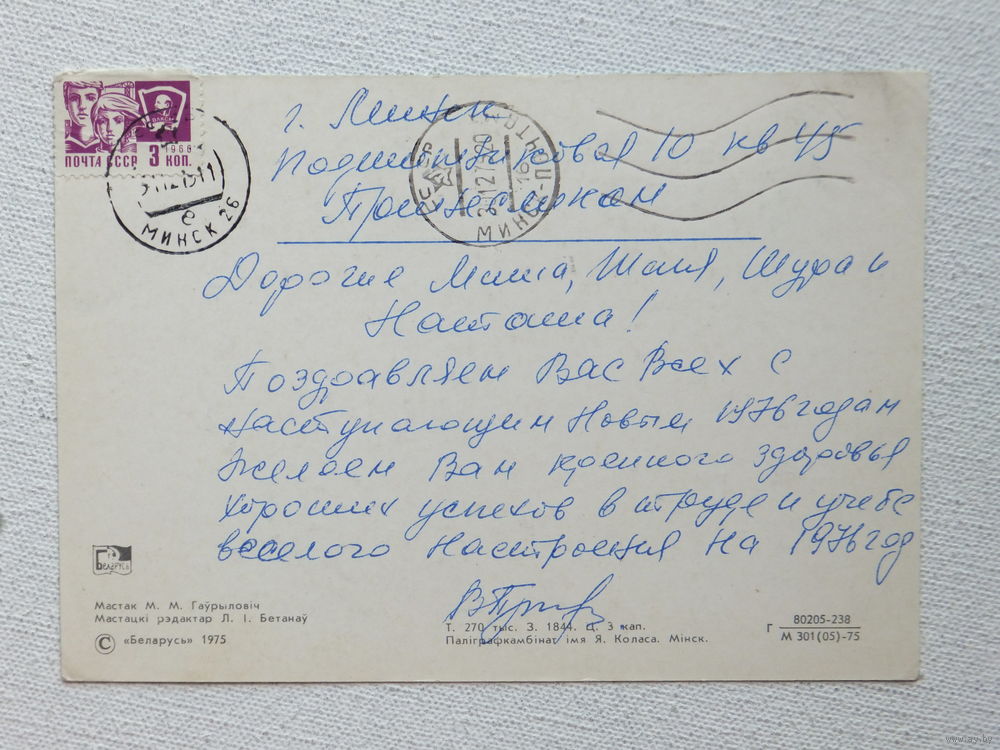 ПОЧТА СССР 3 КОП.
1968
МИНСК 26
е
МИНСК ПОЧТАМТ
г. Минск
Подшипниковая 10 кв 45
Дорогие Миша, Шая, Шура и
Наташа!
Поздравляем Вас Всех с
наступающим Новым 1976 годам
желаем Вам крепкого здоровья
хороших успехов в труде и учебе
веселого настроения на 1976 год
Беларусь
Мастак М. М. Гаўрыловіч
Мастацкі рэдактар Л. І. Бетанаў
© «Беларусь» 1975
Т. 270 тыс. З. 1844. Ц. 3 кап.
Паліграфкамбінат імя Я. Коласа. Мінск.
Г 80205-238
М 301(05)-75
www.ay.by